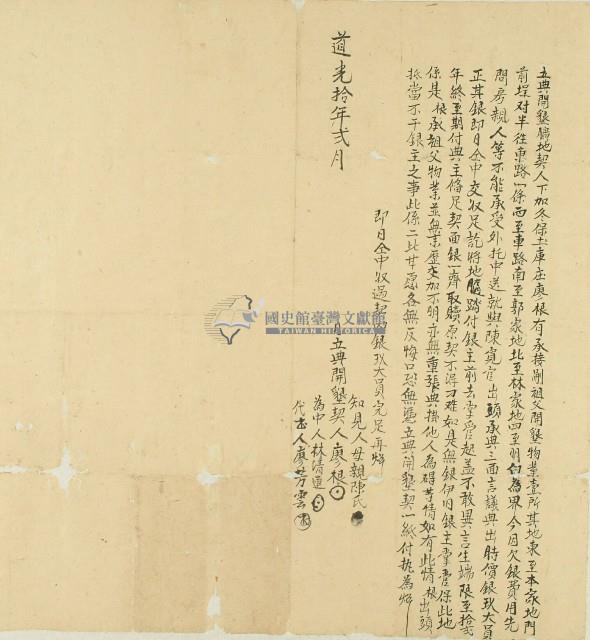 立典開墾曠地契人下加冬保土庫庄廖根有承接剛祖父開墾物業壹所其地東至本家地門
前埕对半徃車路一條西至車路南至郭家地北至林家地四至明白為界今因欠銀費用先
問房親人等不能承受外托中送就與陳寬官出頭承典三面言議典出時價銀玖大員
正其銀即日仝中交收足訖將地踏付銀主前去掌管起盖不敢異言生端限至拾弍
年終至期付典主偹足契面銀一齊取贖原契不淂刁难如是無銀伊旧銀主掌管保此地
係是根承祖父物業並無來歷交加不明亦無重張典掛他人為碍等情如有此情根出頭
抵當不干銀主之事此係二比甘愿各無反悔口恐無憑立典開墾契一紙付执為炤
即日仝中收過契銀玖大員完足再炤
道光拾年弍月 日立典開墾契人廖根
知見人母親陳氏
為中人林清連
代書人廖芳雲
國史館臺灣文獻館
TAIWAN HISTORICA